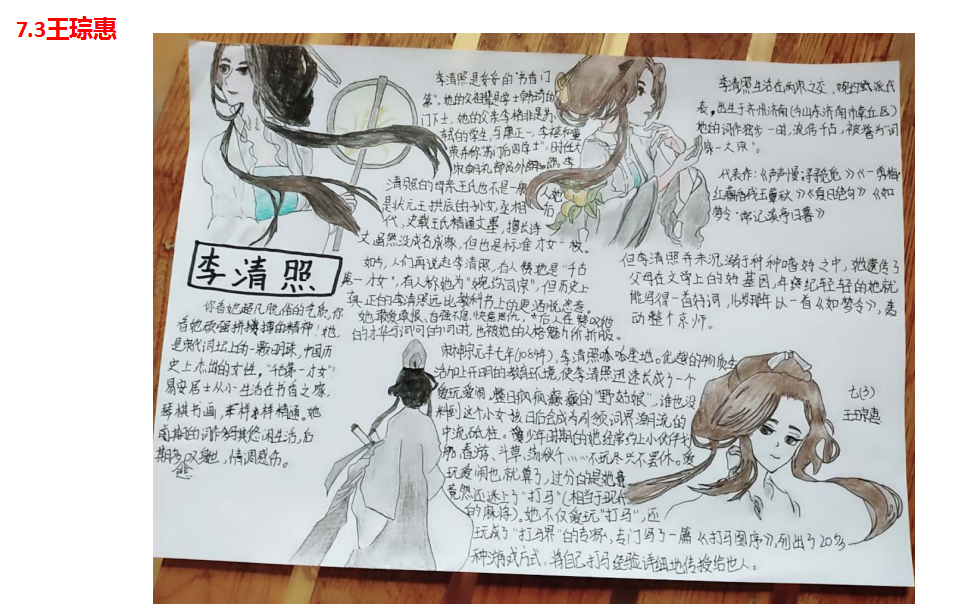 7.3王琮惠
李清照是妥妥的"书香门
第"。她的父祖辈是学士韩琦的
门下士,她的父亲李格非是
轼的学生,与廖正一、李禧
荣并称"苏门后四学士",时任
李
清照的母亲王氏也不是一般人,她
是状元王拱辰的孙女,丞相
后代,史载王氏精通文墨,擅长诗
文,虽然没成名成家,但也是标准才女一枚。
如今,人们再说起李清照,有人赞她是"千古
第一才女",有人称她为"婉约词宗",但历史上
真正的李清照远比教科书上的更洒脱恣意。
她敢爱敢恨、自强不息、快意恩仇。后人在赞叹她
的才华与词间的同时,也被她的人格魅力所折服。
李清照
你看她超凡脱俗的气质,你
看她顽强拼搏的精神!她
是宋代词坛上的一颗明珠,中国历
史上杰出的女性,"千古第一才女"!
易安居士从小生活在书香之家,
琴棋书画,样样精通。她
前期的词作多其悠闲生活,后
期多叹身世,情调感伤。
李清照生活在两宋之交,婉约词派代
表。出生于齐州济南(今山东济南市章丘区)
她的词作独步一时,流传千古,被誉为"词
家一大宗"。
代表作:《声声慢·寻寻觅觅》《一剪梅·
红藕香残玉簟秋》《夏日绝句》《如
梦令·常记溪亭日暮》
但李清照并未沉溺于种种嗜好之中,她遗传了
父母在文学上的好基因,年纪轻轻的她就
能写得一首好词,16岁那年以一首《如梦令》,轰
动整个京师。
宋神宗元丰七年(1084年),李清照呱呱坠地。优越的物质生
活加上开明的教育环境,使李清照迅速长成了一个
爱玩爱闹,整日疯疯癫癫的"野姑娘",谁也没
料到这个小女孩日后会成为引领词界潮流的
中流砥柱。少年时期的她经常约上小伙伴
春游、斗草、荡秋千……不玩尽兴不罢休。爱
玩爱闹也就算了,过分的是她竟
竟然还迷上了"打马"(相当于现代
的麻将)。她不仅爱玩"打马",还
玩成了"打马界"的专家,专门写了一篇《打马图序》,列出了20多
种游戏方式,将自己打马经验详细地传授给世人。
七(3)
王琮惠